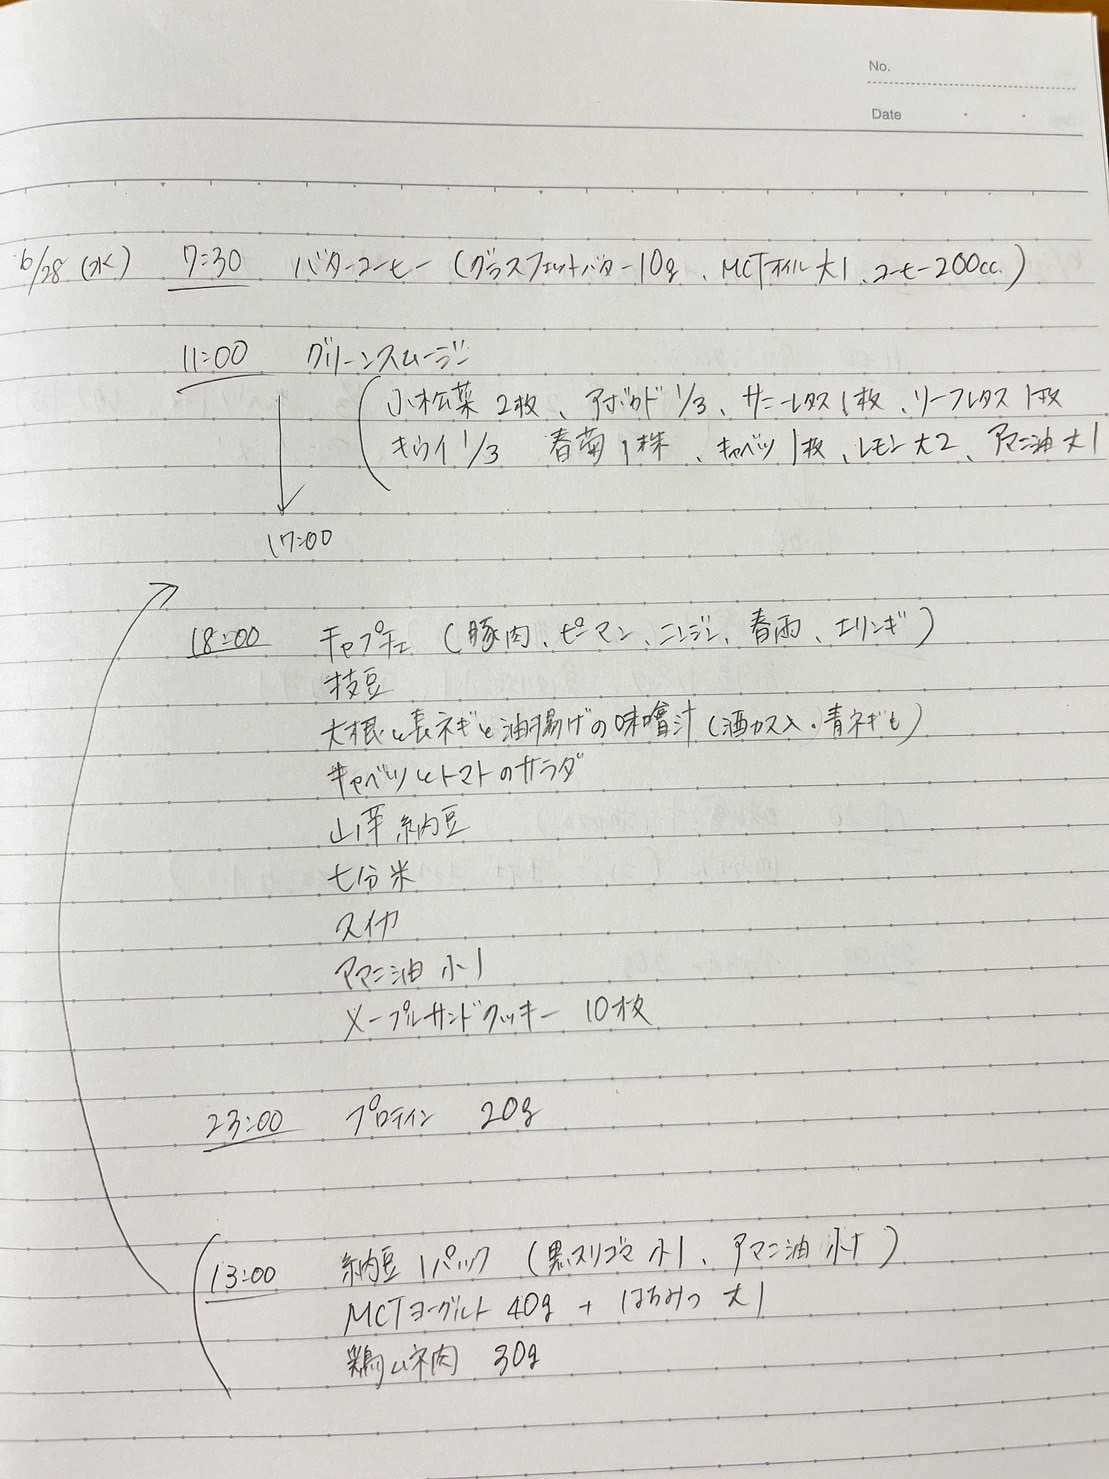 No.
Date
6/28 (水) 7:30 バターコーヒー (グラスフェットバター10g、MCTオイル大1、コーヒー200cc.)
11:00 グリーンスムージー
小松菜 2枚、アボカド 1/3、サニーレタス1枚、リーフレタス 1枚
キウイ 1/3 春菊1株、キャベツ 1枚、レモン大2、アマニ油大1
17:00
18:00 チャプチェ (豚肉、ピーマン、ニンジン、春雨、エリンギ)
枝豆
大根と長ネギと油揚げの味噌汁 (酒カス入・青ネギも)
キャベツとトマトのサラダ
山芋納豆
七分米
スイカ
アマニ油 小1
メープルサンドクッキー 10枚
23:00 プロテイン 20g
13:00 納豆 1パック (黒スリゴマ 小1、アマニ油 小1)
MCTヨーグルト 40g + はちみつ 大1
鶏ムネ肉 30g